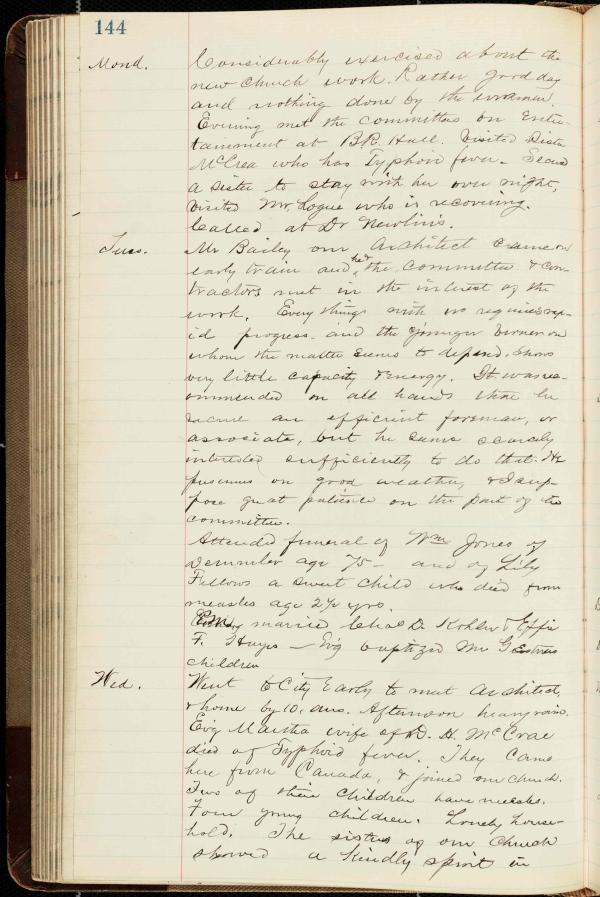 144
Mond. Considerably exercised about the
new church work. Rather good day
and nothing done by the workmen.
Evening met the committees on Enter-
tainment at B.R. Hall. Visited Sister
McCrea who has Typhoid fever. Secured
a sister to stay with her over night,
visited Mr. Logue who is recovering.
Called at Dr Newlin's.
Tues. Mr Bailey our Architect came on
early train and had the committee & con-
tractors met in the interest of the
work. Everything with us requires rap-
id progress. and the younger on
whom the matter seems to depend, shows
very little capacity & energy. It was rec-
ommended on all hands that he
secure an efficient foreman, or
associate, but he seems scarcely
interested sufficiently to do that. He
presumes on good weather, & I sup-
pose great patience on the part of the
committee.
Attended funeral of Wm Jones of
age 75 – and of Lily
Fellows a sweet child who died from
measles age 2½ yrs.
married Chas D. Kohler & Effie
F. Hayes – Ev'g baptized Mr
children
Wed. Went to City Early to meet Architect,
& home by 10, ans. Afternoon heavy rain.
Ev'g Martha wife of D. H. McCrae
died of Typhoid fever. They came
here from Canada, & joined our church.
Two of their children have measles.
Four young children. Lonely house-
hold. The sisters of our Church
showed a kindly spirit in